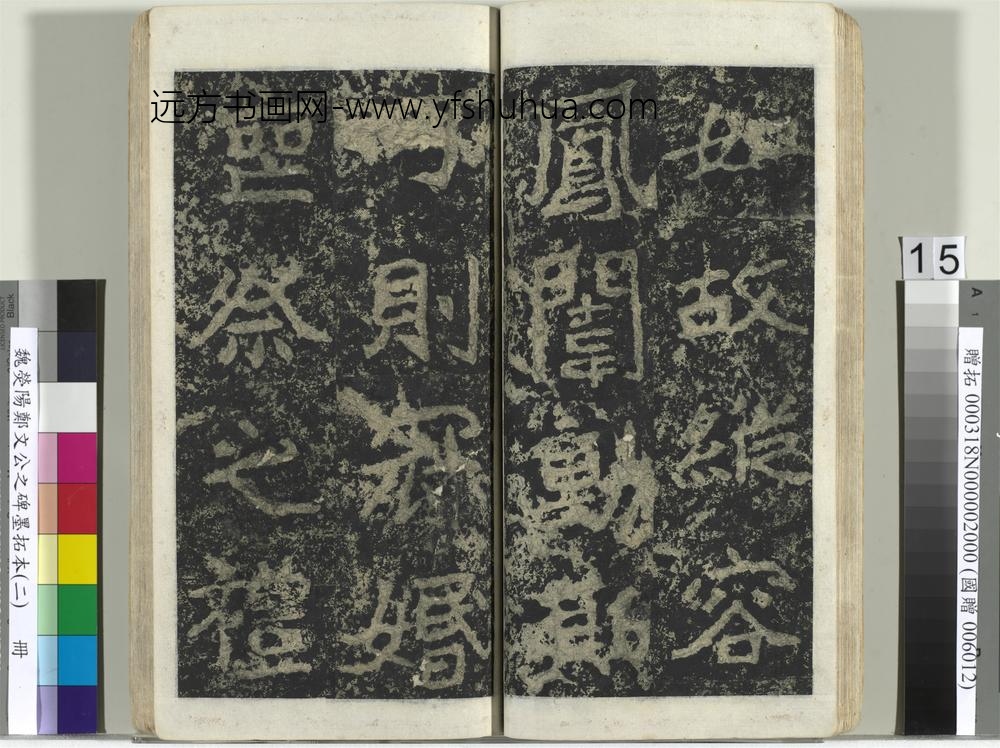 远方书画网-www.yfshuhua.com
如故縱容
鳳闈動斯
可則冠婚
喪祭之禮
15
魏滎陽鄭文公之碑墨拓本(二) 冊
贈拓 000318N000002000 (國贈 006012)
Black
A
1